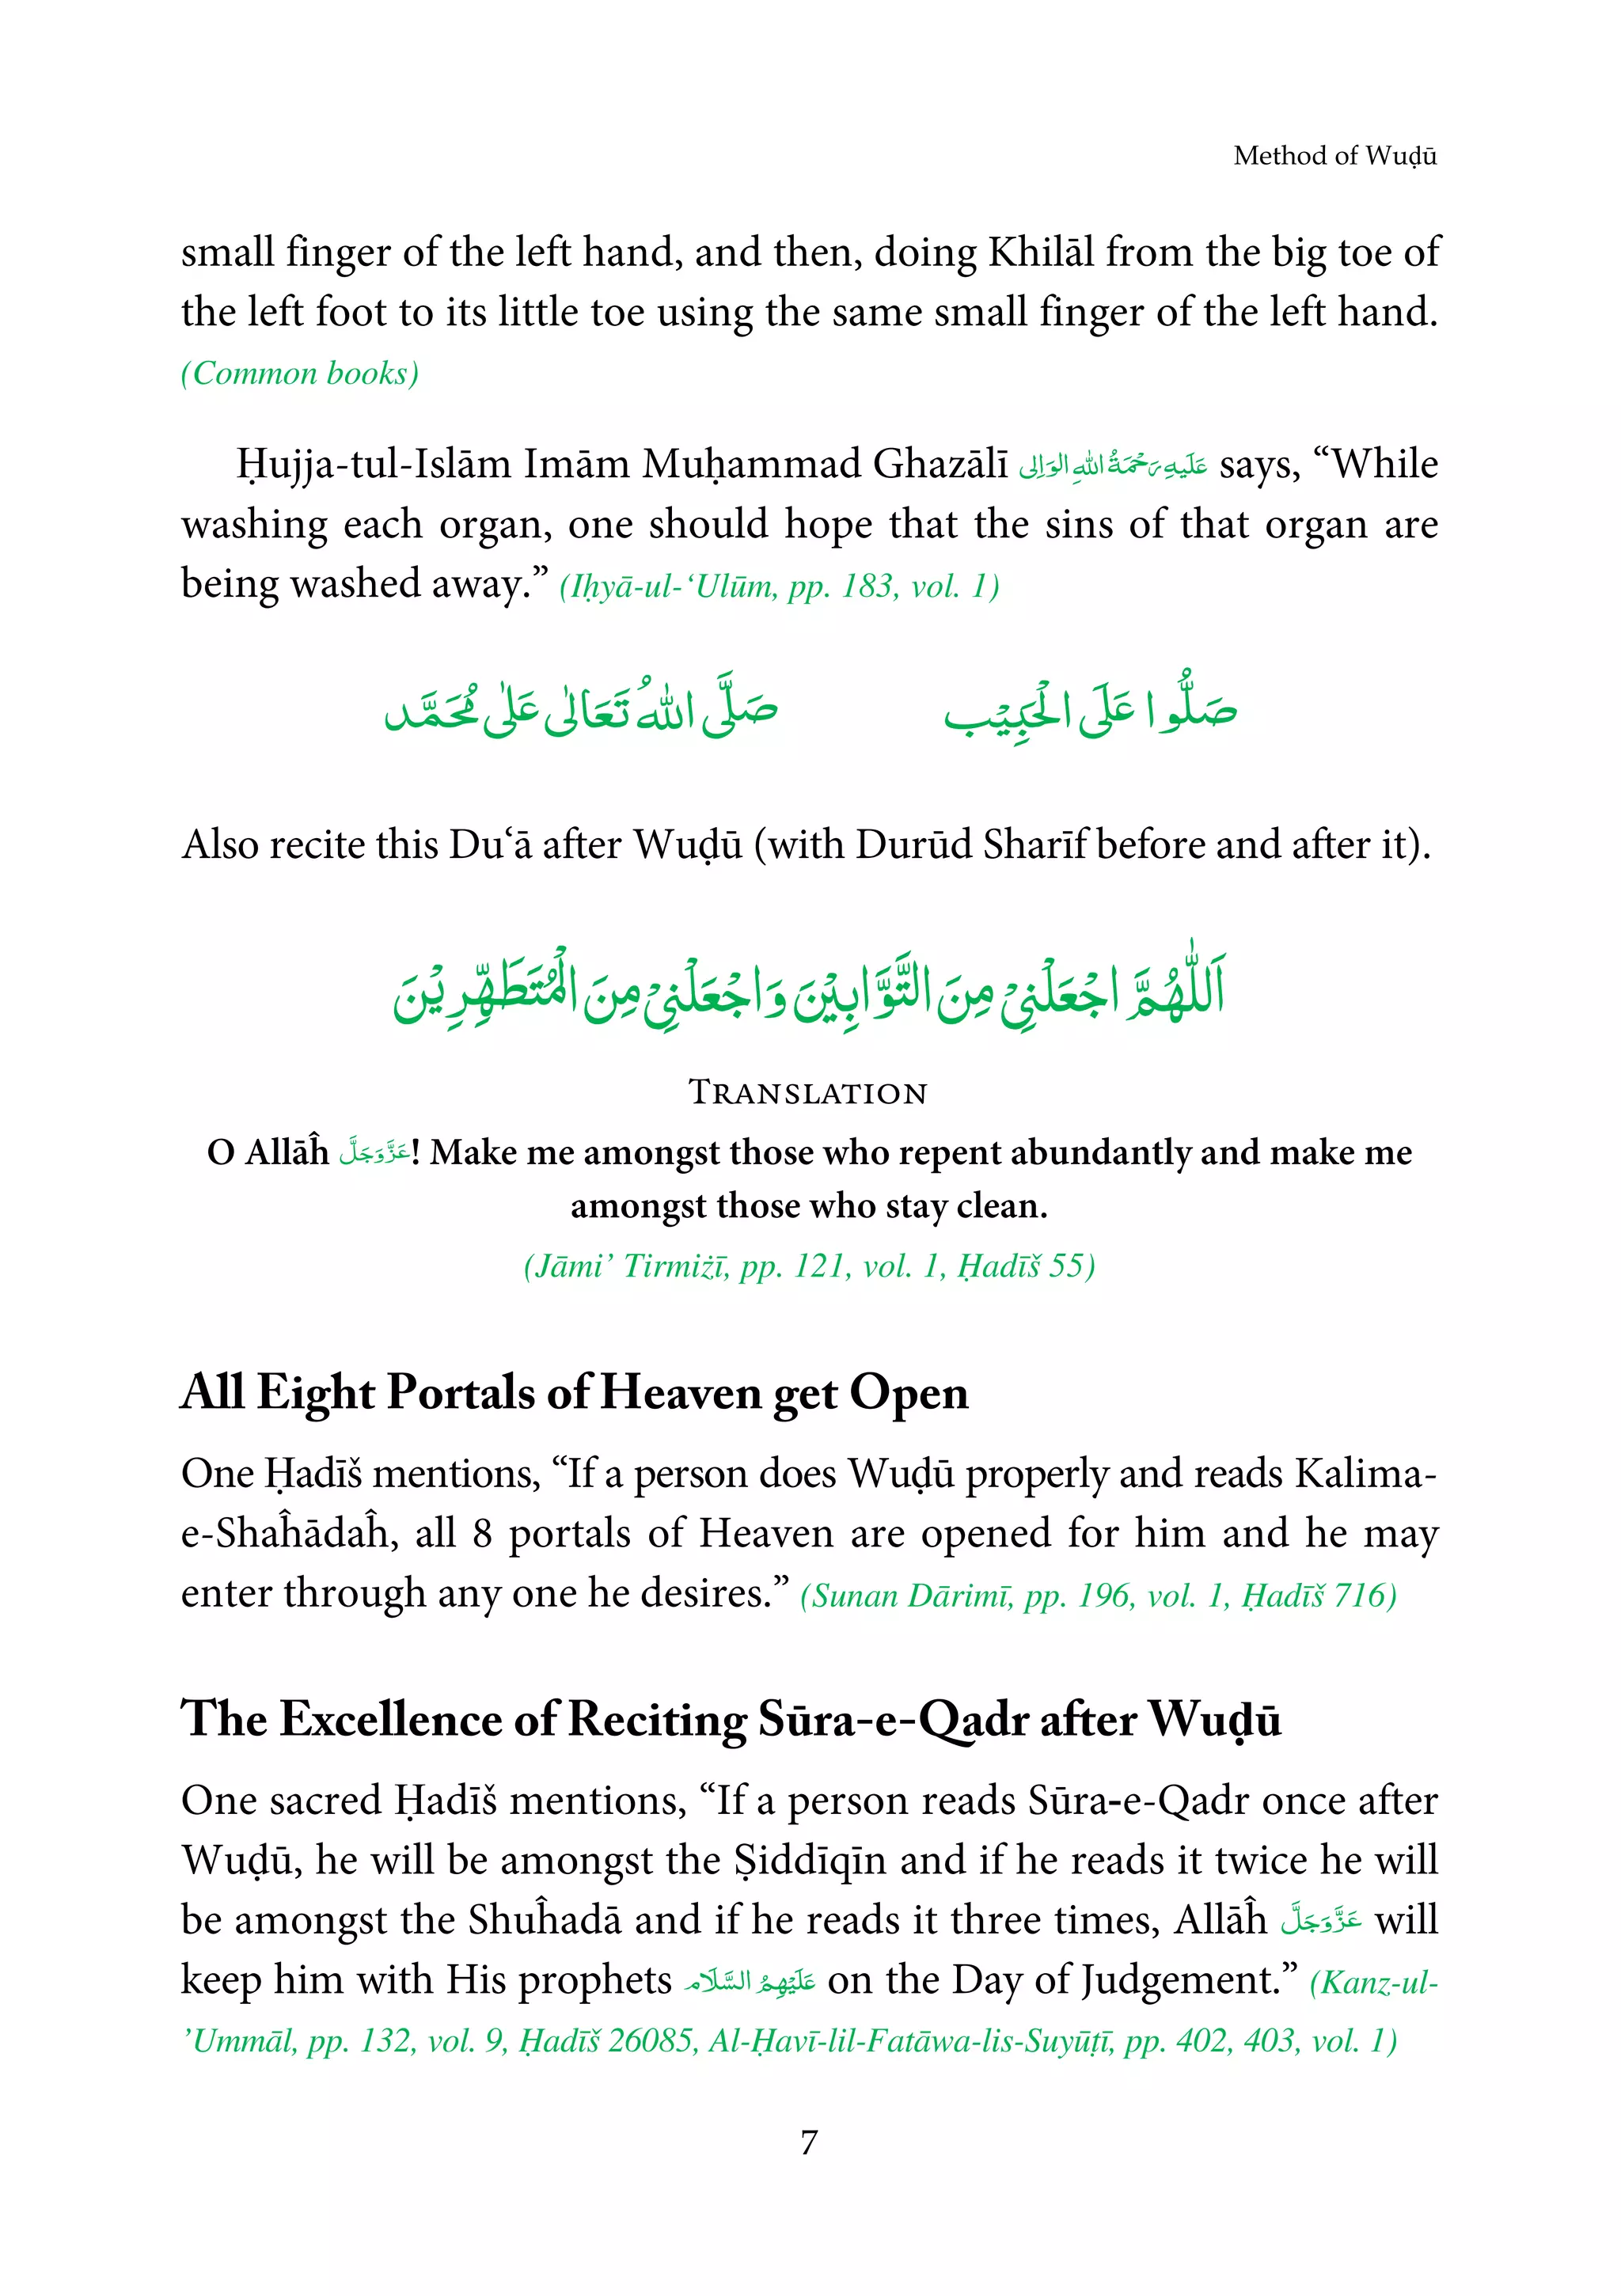 Method of Wuḍū
small finger of the left hand, and then, doing Khilāl from the big toe of
the left foot to its little toe using the same small finger of the left hand.
(Common books)
Ḥujja-tul-Islām Imām Muḥammad Ghazālī عَلَيهِ رَحْمَةُ اللهِ الوَالِى says, “While
washing each organ, one should hope that the sins of that organ are
being washed away.” (Iḥyā-ul-‘Ulūm, pp. 183, vol. 1)
صَلُّوا عَلَى الْحَبِيْب صَلَّى اللهُ تَعَالٰى عَلٰى مُحَمَّد
Also recite this Du‘ā after Wuḍū (with Durūd Sharīf before and after it).
اَللّٰهُمَّ اجْعَلْنِيْ مِنَ التَّوَّابِيْنَ وَاجْعَلْنِيْ مِنَ الْمُتَطَهِّرِيْنَ
Translation
O Allāĥ عَزَّوَجَلَّ! Make me amongst those who repent abundantly and make me
amongst those who stay clean.
(Jāmi’ Tirmiżī, pp. 121, vol. 1, Ḥadīš 55)
All Eight Portals of Heaven get Open
One Ḥadīš mentions, “If a person does Wuḍū properly and reads Kalima-
e-Shaĥādaĥ, all 8 portals of Heaven are opened for him and he may
enter through any one he desires.” (Sunan Dārimī, pp. 196, vol. 1, Ḥadīš 716)
The Excellence of Reciting Sūra-e-Qadr after Wuḍū
One sacred Ḥadīš mentions, “If a person reads Sūra-e-Qadr once after
Wuḍū, he will be amongst the Ṣiddīqīn and if he reads it twice he will
be amongst the Shuĥadā and if he reads it three times, Allāĥ عَزَّوَجَلَّ will
keep him with His prophets عَلَيْهِمُ السَّلَام on the Day of Judgement.” (Kanz-ul-
’Ummāl, pp. 132, vol. 9, Ḥadīš 26085, Al-Ḥavī-lil-Fatāwa-lis-Suyūṭī, pp. 402, 403, vol. 1)
7